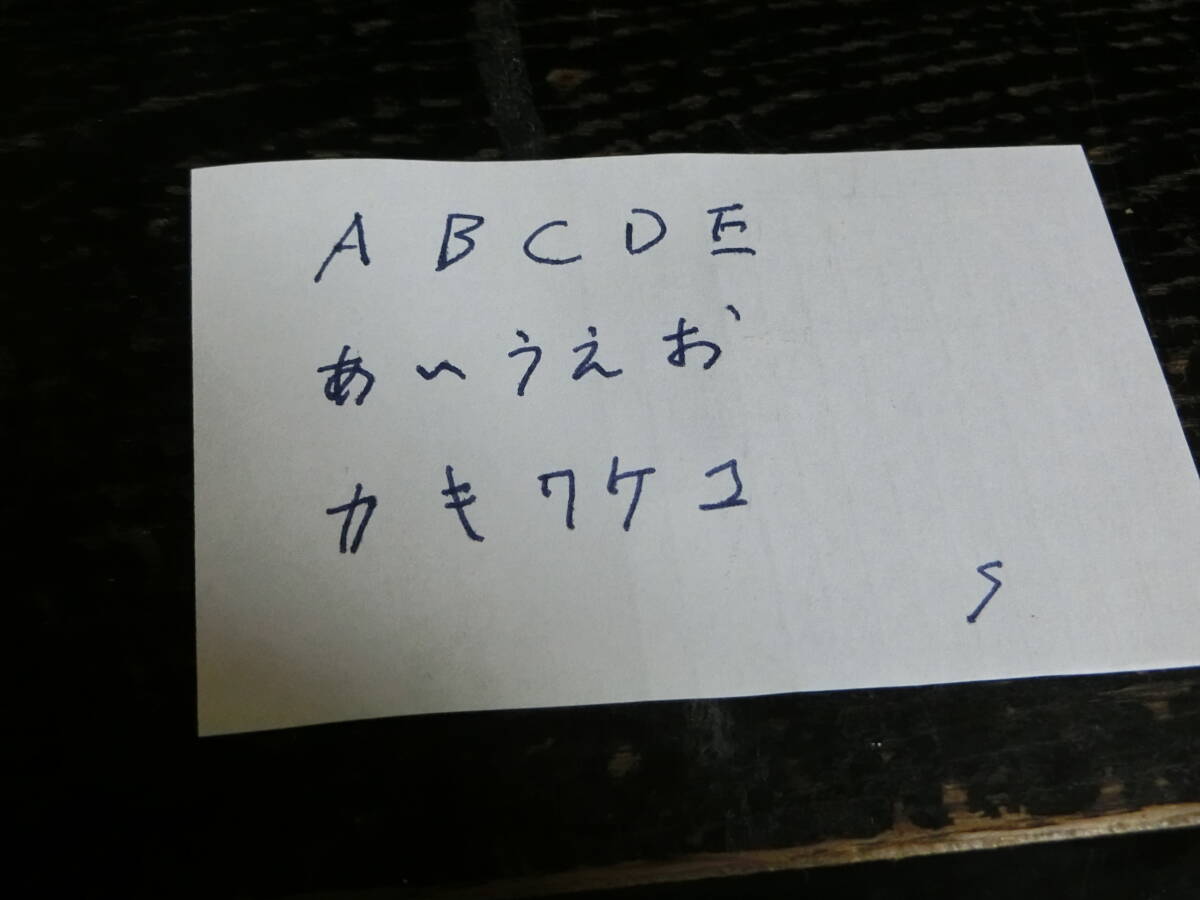 A B C D E
あいうえお
カキクケコ
S